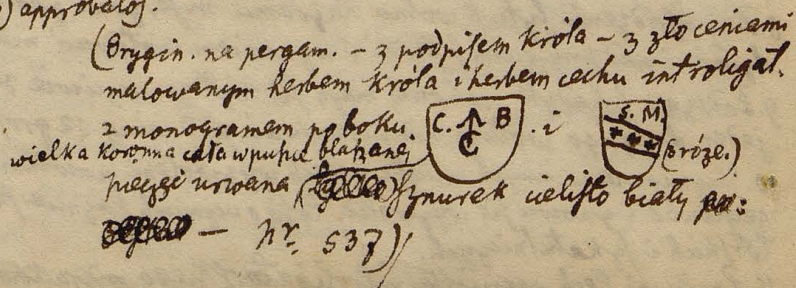 ) approbatoj.
(Orygin. na pergam. – z podpisem króla – z złoceniami
malowanym herbem króla i herbem cechu introligat.
z monogramem po boku. C. B . i S. M.
C
wielka koronna cała w puszce blaszanej (3 róże.)
pieczęć urwana ( ) sznurek cielisto biały
— Nr. 537)